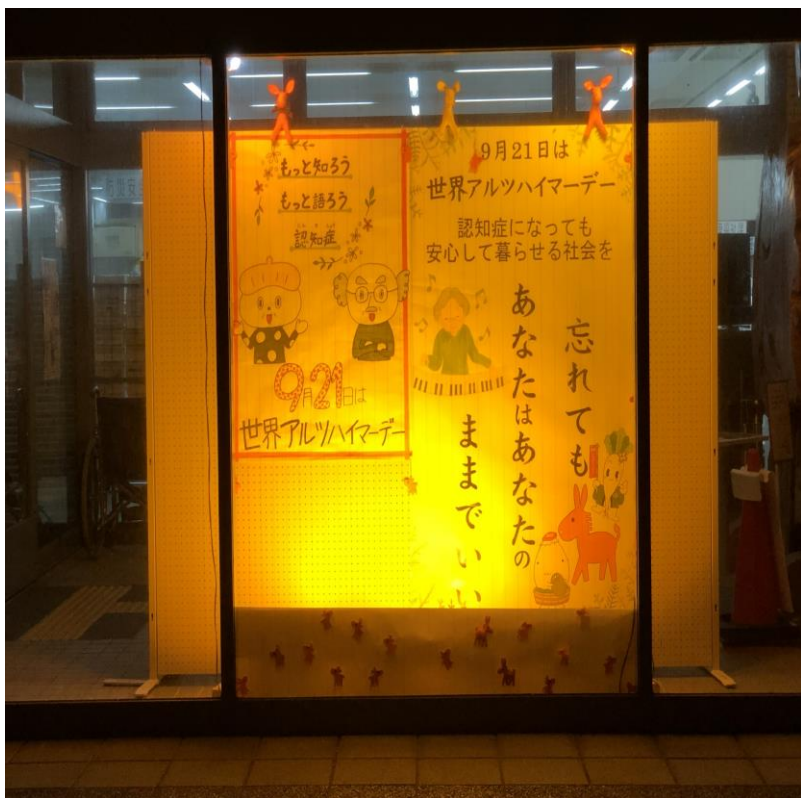 もっと知ろう
もっと語ろう
認知症
9月21日は
世界アルツハイマーデー
9月21日は
世界アルツハイマーデー
認知症になっても
安心して暮らせる社会を
忘れても
あなたはあなたの
ままでいい